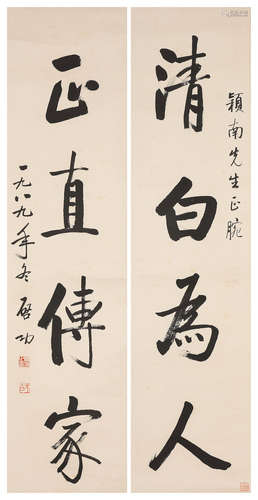 穎南先生正腕
清白為人
正直傳家
一九八九年冬 啓功